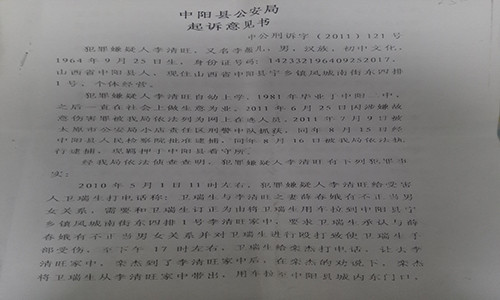 中阳县公安局
起诉意见书
中公刑诉字（2011）121号
犯罪嫌疑人李清旺，又名李 儿，男，汉族，初中文化，
1964年9月25日生，身份证号码：142332196409252017，
山西省中阳县人，现住山西省中阳县宁乡镇凤城南街东四排
1号，个体经营。
犯罪嫌疑人李清旺自幼上学，1981年毕业于中阳二中，
之后一直在社会上做生意为业，2011年6月25日因涉嫌故
意伤害罪被我局依法列为网上在逃人员，2011年7月9日被
太原市公安局小店责任区刑警中队抓获，同年8月15日经
中阳县人民检察院批准逮捕，同年8月16日被我局依法执
行逮捕，现羁押于中阳县看守所。
经我局依法侦查查明，犯罪嫌疑人李清旺有下列犯罪事
实：
2010年5月1日11时左右，犯罪嫌疑人李清旺给受害
人卫瑞生打电话称：卫瑞生与李清旺之妻薛春娥有不正当男
女关系，需要和卫瑞生订正为由将卫瑞生用车拉到中阳县宁
乡镇凤城南街东四排1号李清旺家中，要求卫瑞生承认与薛
春娥有不正当男女关系并对卫瑞生进行殴打致使卫瑞生
部受伤，下午17时左右，卫瑞生给栾杰打电话，让去李
清旺家中，栾杰到了李清旺家中后，在栾杰的劝说下，栾杰
将卫瑞生从李清旺家中带出，用车拉 中阳县城内东门口，